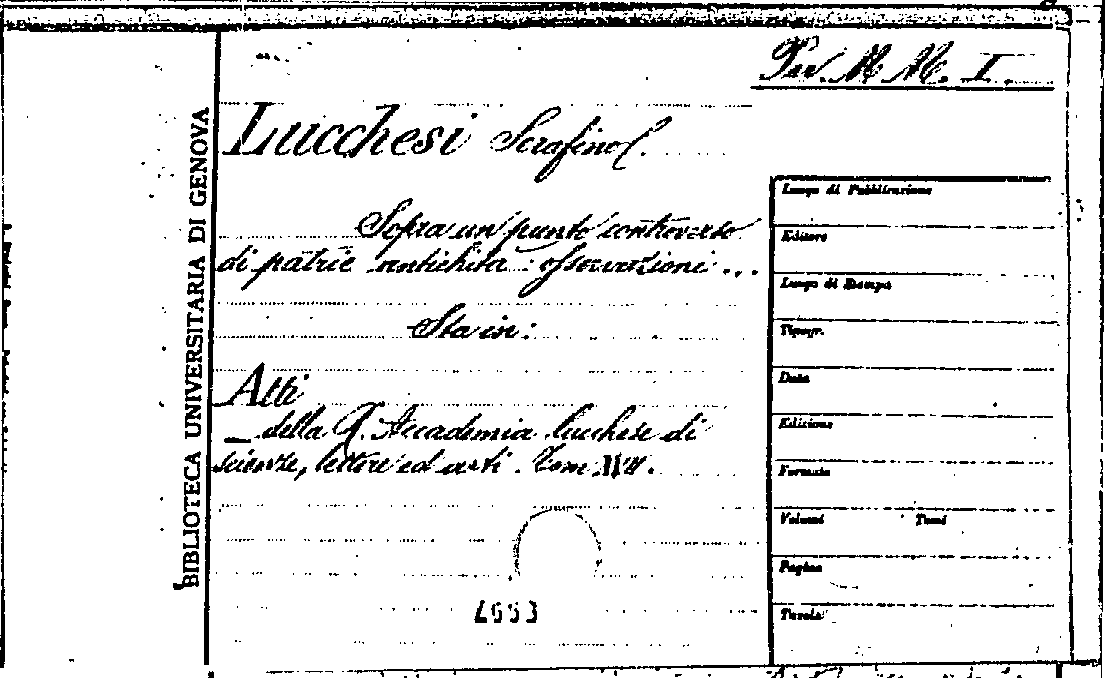 Per. M. M. I.
BIBLIOTECA UNIVERSITARIA DI GENOVA
Lucchesi Serafino
Sopra un punto controverso
di patrie antichità: osservazioni ...
Sta in:
Atti
della R. Accademia lucchese di
scienze, lettere ed arti. Tom
Luogo di Pubblicazione
Editore
Luogo di Stampa
Tipogr.
Data
Edizione
Formato
Volumi Tomi
Pagine
Tavole